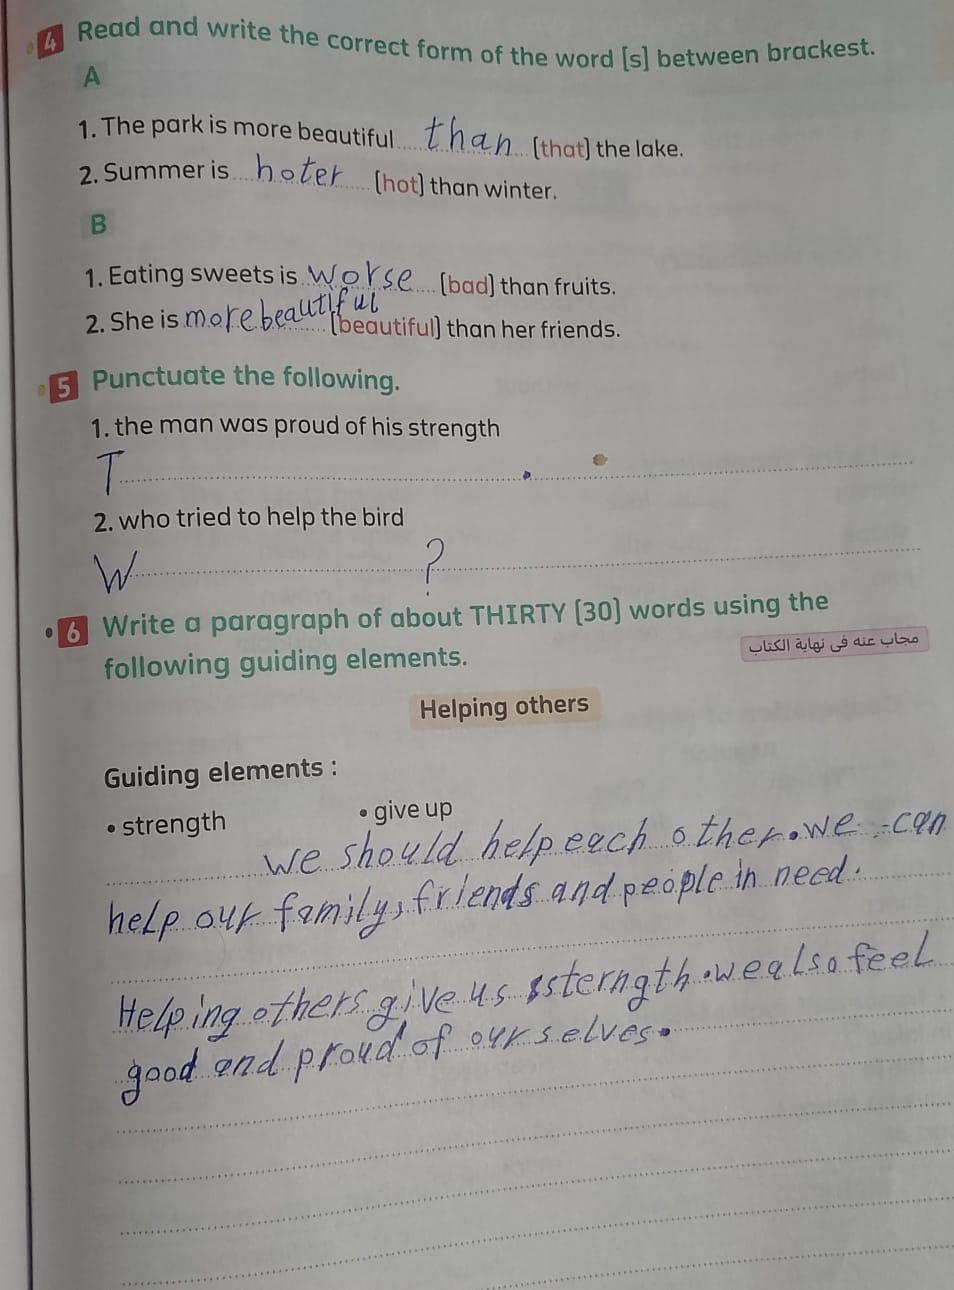 4 Read and write the correct form of the word [s] between brackest.
A
1. The park is more beautiful than [that] the lake.
2. Summer is hoter [hot] than winter.
B
1. Eating sweets is worse [bad] than fruits.
2. She is more beautiful [beautiful] than her friends.
5 Punctuate the following.
1. the man was proud of his strength
T .
2. who tried to help the bird
W ?
6 Write a paragraph of about THIRTY [30] words using the
following guiding elements.
مجاب عنه فى نهاية الكتاب
Helping others
Guiding elements :
• strength • give up
we should help each other. we can
help our family, friends and people in need.
Helping others give us sterngth. we also feel
good and proud of our selves.